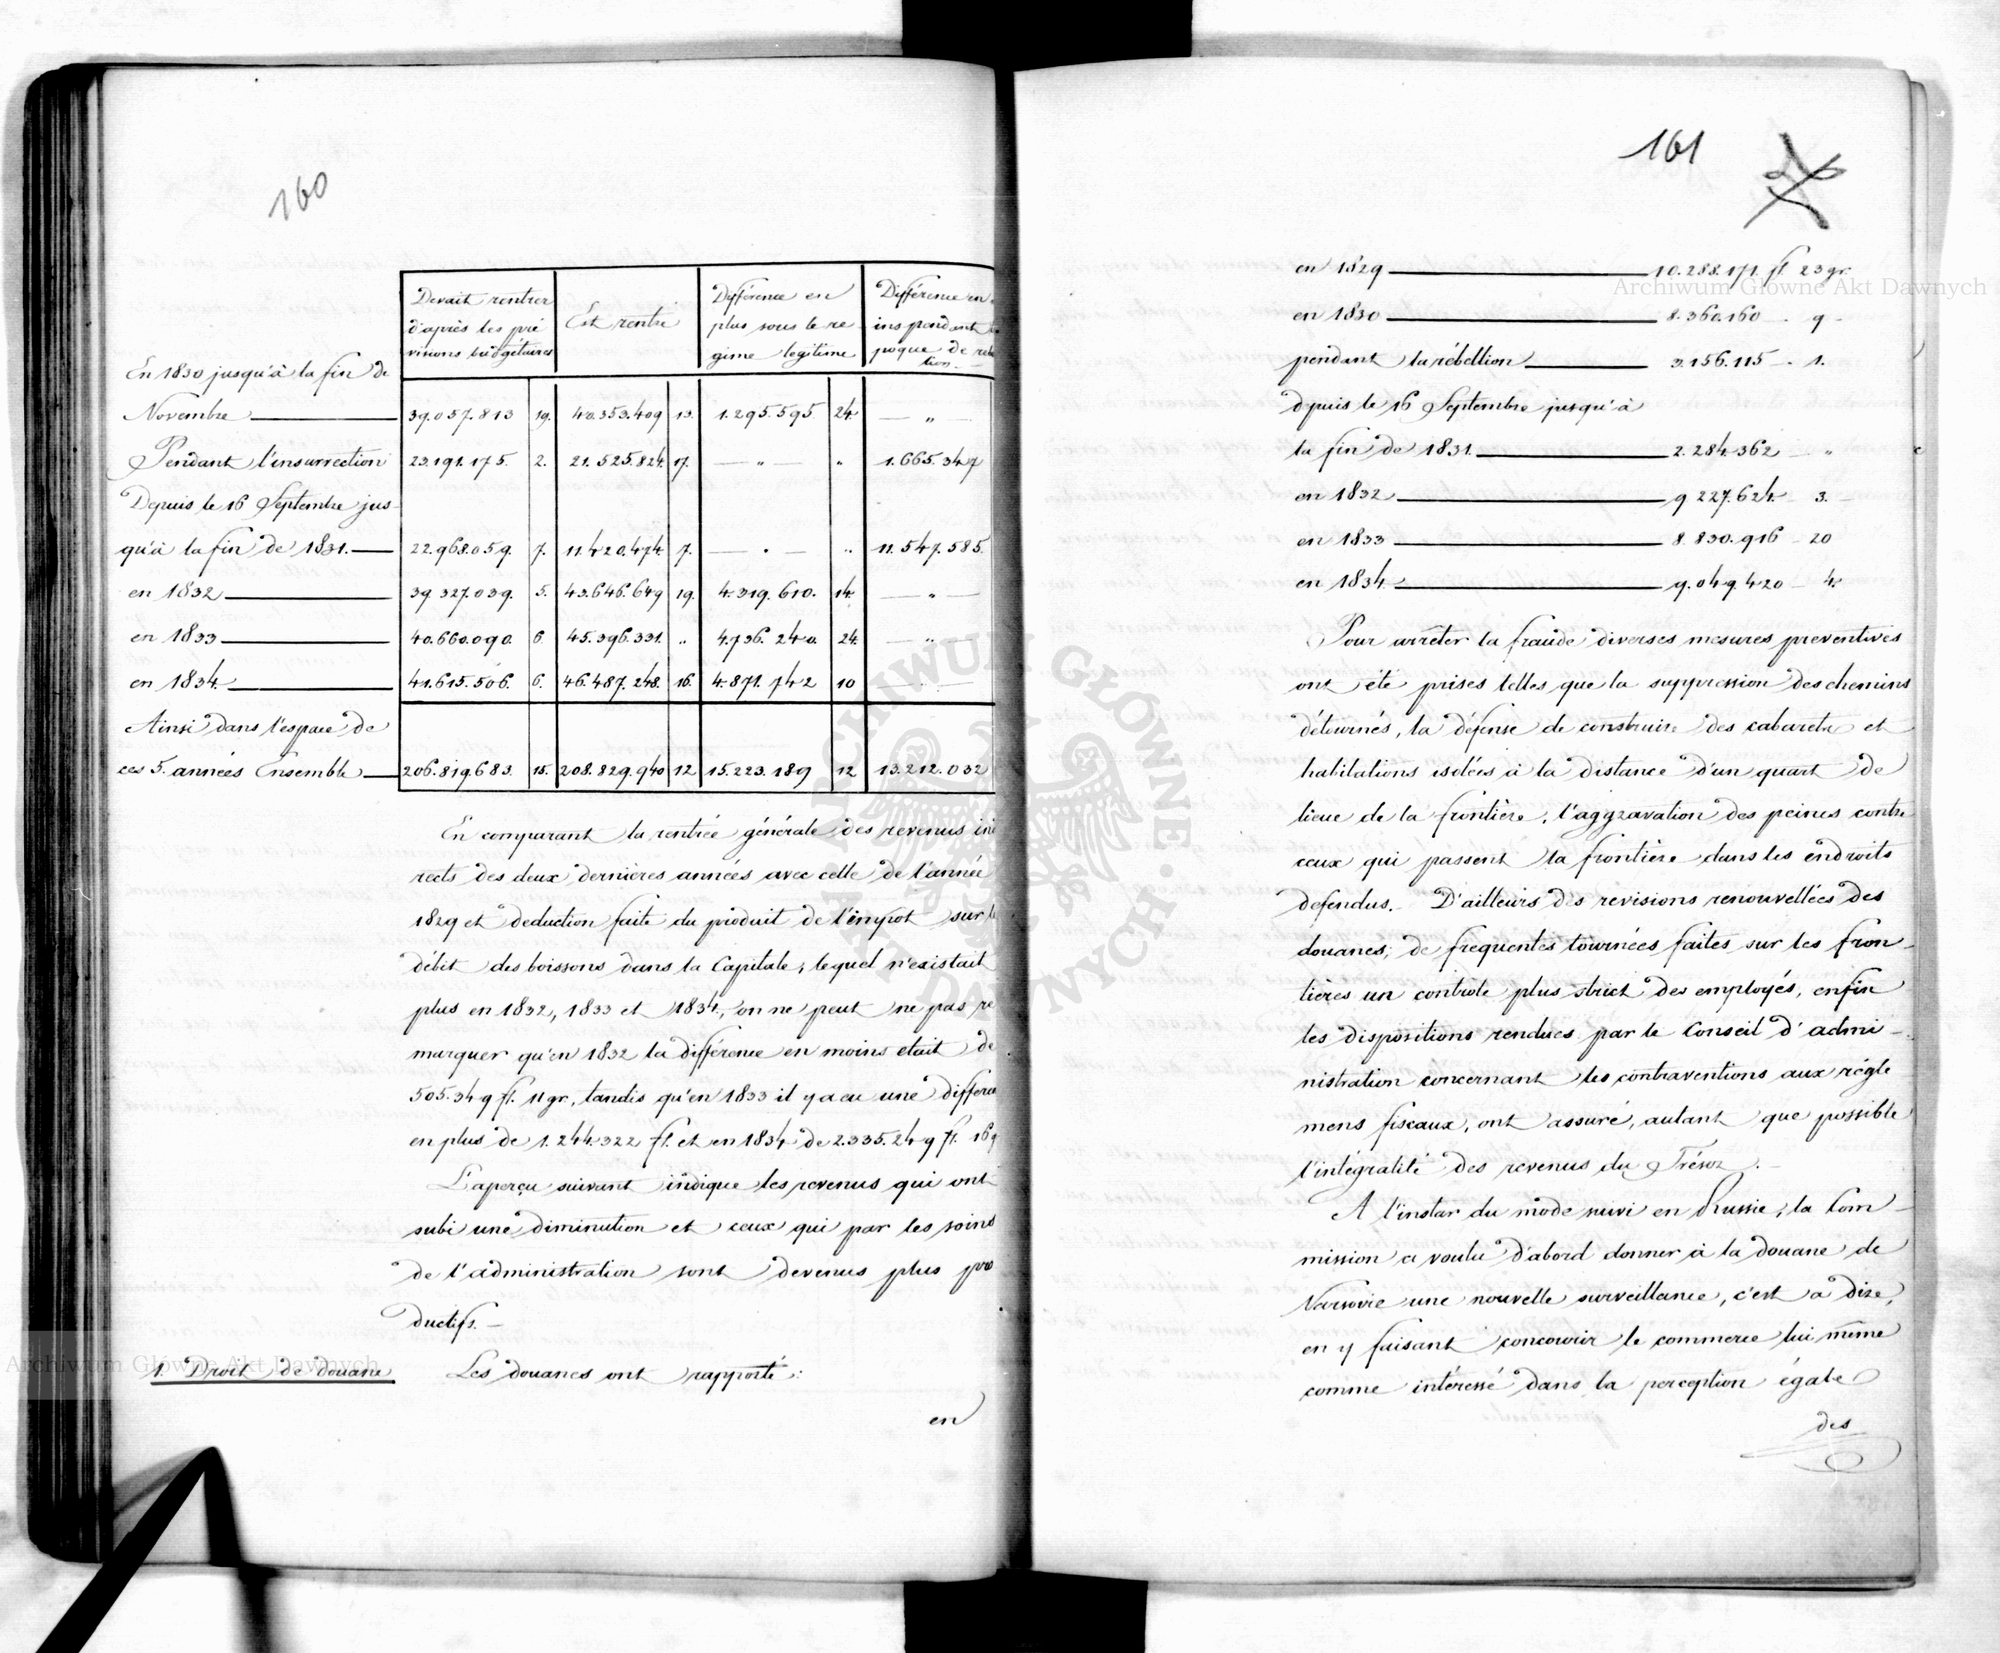 160
Devait rentrer d'après les prévisions budgétaires | Est rentré | Différence en plus sous le regime legitime | Différence en
En 1830 jusqu'à la fin de
Novembre 39.057.813 19. 40.353.409 13. 1.295.595. 24. — „ —
Pendant l'insurrection 23.191.175. 2. 21.525.824. 17. — „ — „ 1.665.347
Depuis le 16 Septembre jus-
qu'à la fin de 1831. 22.968.059. 7. 11.420.474. 7. — „ — „ 11.547.585.
en 1832 39.327.039. 5. 43.646.649 19. 4.319.610. 14. — „ —
en 1833 40.660.090. 6 45.396.331. „ 4.736.240. 24. — „ —
en 1834. 41.615.506. 6. 46.487.248. 16. 4.871.742 10 — „ —
Ainsi dans l'espace de
ces 5. années Ensemble 206.819.683. 15. 208.829.940 12 15.223.189 12 13.212.032
En comparant la rentrée générale des revenus in
rects des deux dernières années avec celle de l'année
1829 et deduction faite du produit de l'impot sur l
débit des boissons dans la Capitale, lequel n'existait
plus en 1832, 1833 et 1834, on ne peut ne pas re
marquer qu'en 1832 la différence en moins etait de
505.349 fl. 11 gr., tandis qu'en 1833 il y a eu une differe
en plus de 1.244.322 fl. et en 1834 de 2.335.249 fl. 16 g
L'aperçu suivant indique les revenus qui ont
subi une diminution et ceux qui par les soins
de l'administration sont devenus plus pro
ductifs. —
1. Droit de douane Les douanes ont rapporté:
en
161
en 1829 10.288.171. fl. 23 gr.
en 1830 8.360.160 - 9 -
pendant la rébellion 3.156.115 - 1.
depuis le 16 Septembre jusqu'à
la fin de 1831. 2.284.362 - „
en 1832 9.227.624. 3. -
en 1833 8.830.916 - 20
en 1834. 9.049.420 - 4.
Pour arrêter la fraude diverses mesures preventives
ont été prises telles que la suppression des chemins
détournés, la défense de construire des cabarets et
habitations isolées à la distance d'un quart de
lieue de la frontière, l'aggravation des peines contre
ceux qui passent la frontière dans les endroits
defendus. D'ailleurs des revisions renouvellées des
douanes, de frequentes tournées faites sur les fron-
tières un controle plus strict des employés, enfin
les dispositions rendues par le Conseil d'admi-
nistration concernant les contraventions aux régle
mens fiscaux, ont assuré, autant que possible
l'intégralité des revenus du Trésor. -
A l'instar du mode suivi en Russie, la Com-
mission a voulu d'abord donner à la douane de
Varsovie une nouvelle surveillance, c'est a dire,
en y faisant concourir le commerce lui même
comme intéressé dans la perception égale
des
Archiwum Główne Akt Dawnych
Archiwum Główne Akt Dawnych
ARCHIWUM GŁÓWNE AKT DAWNYCH